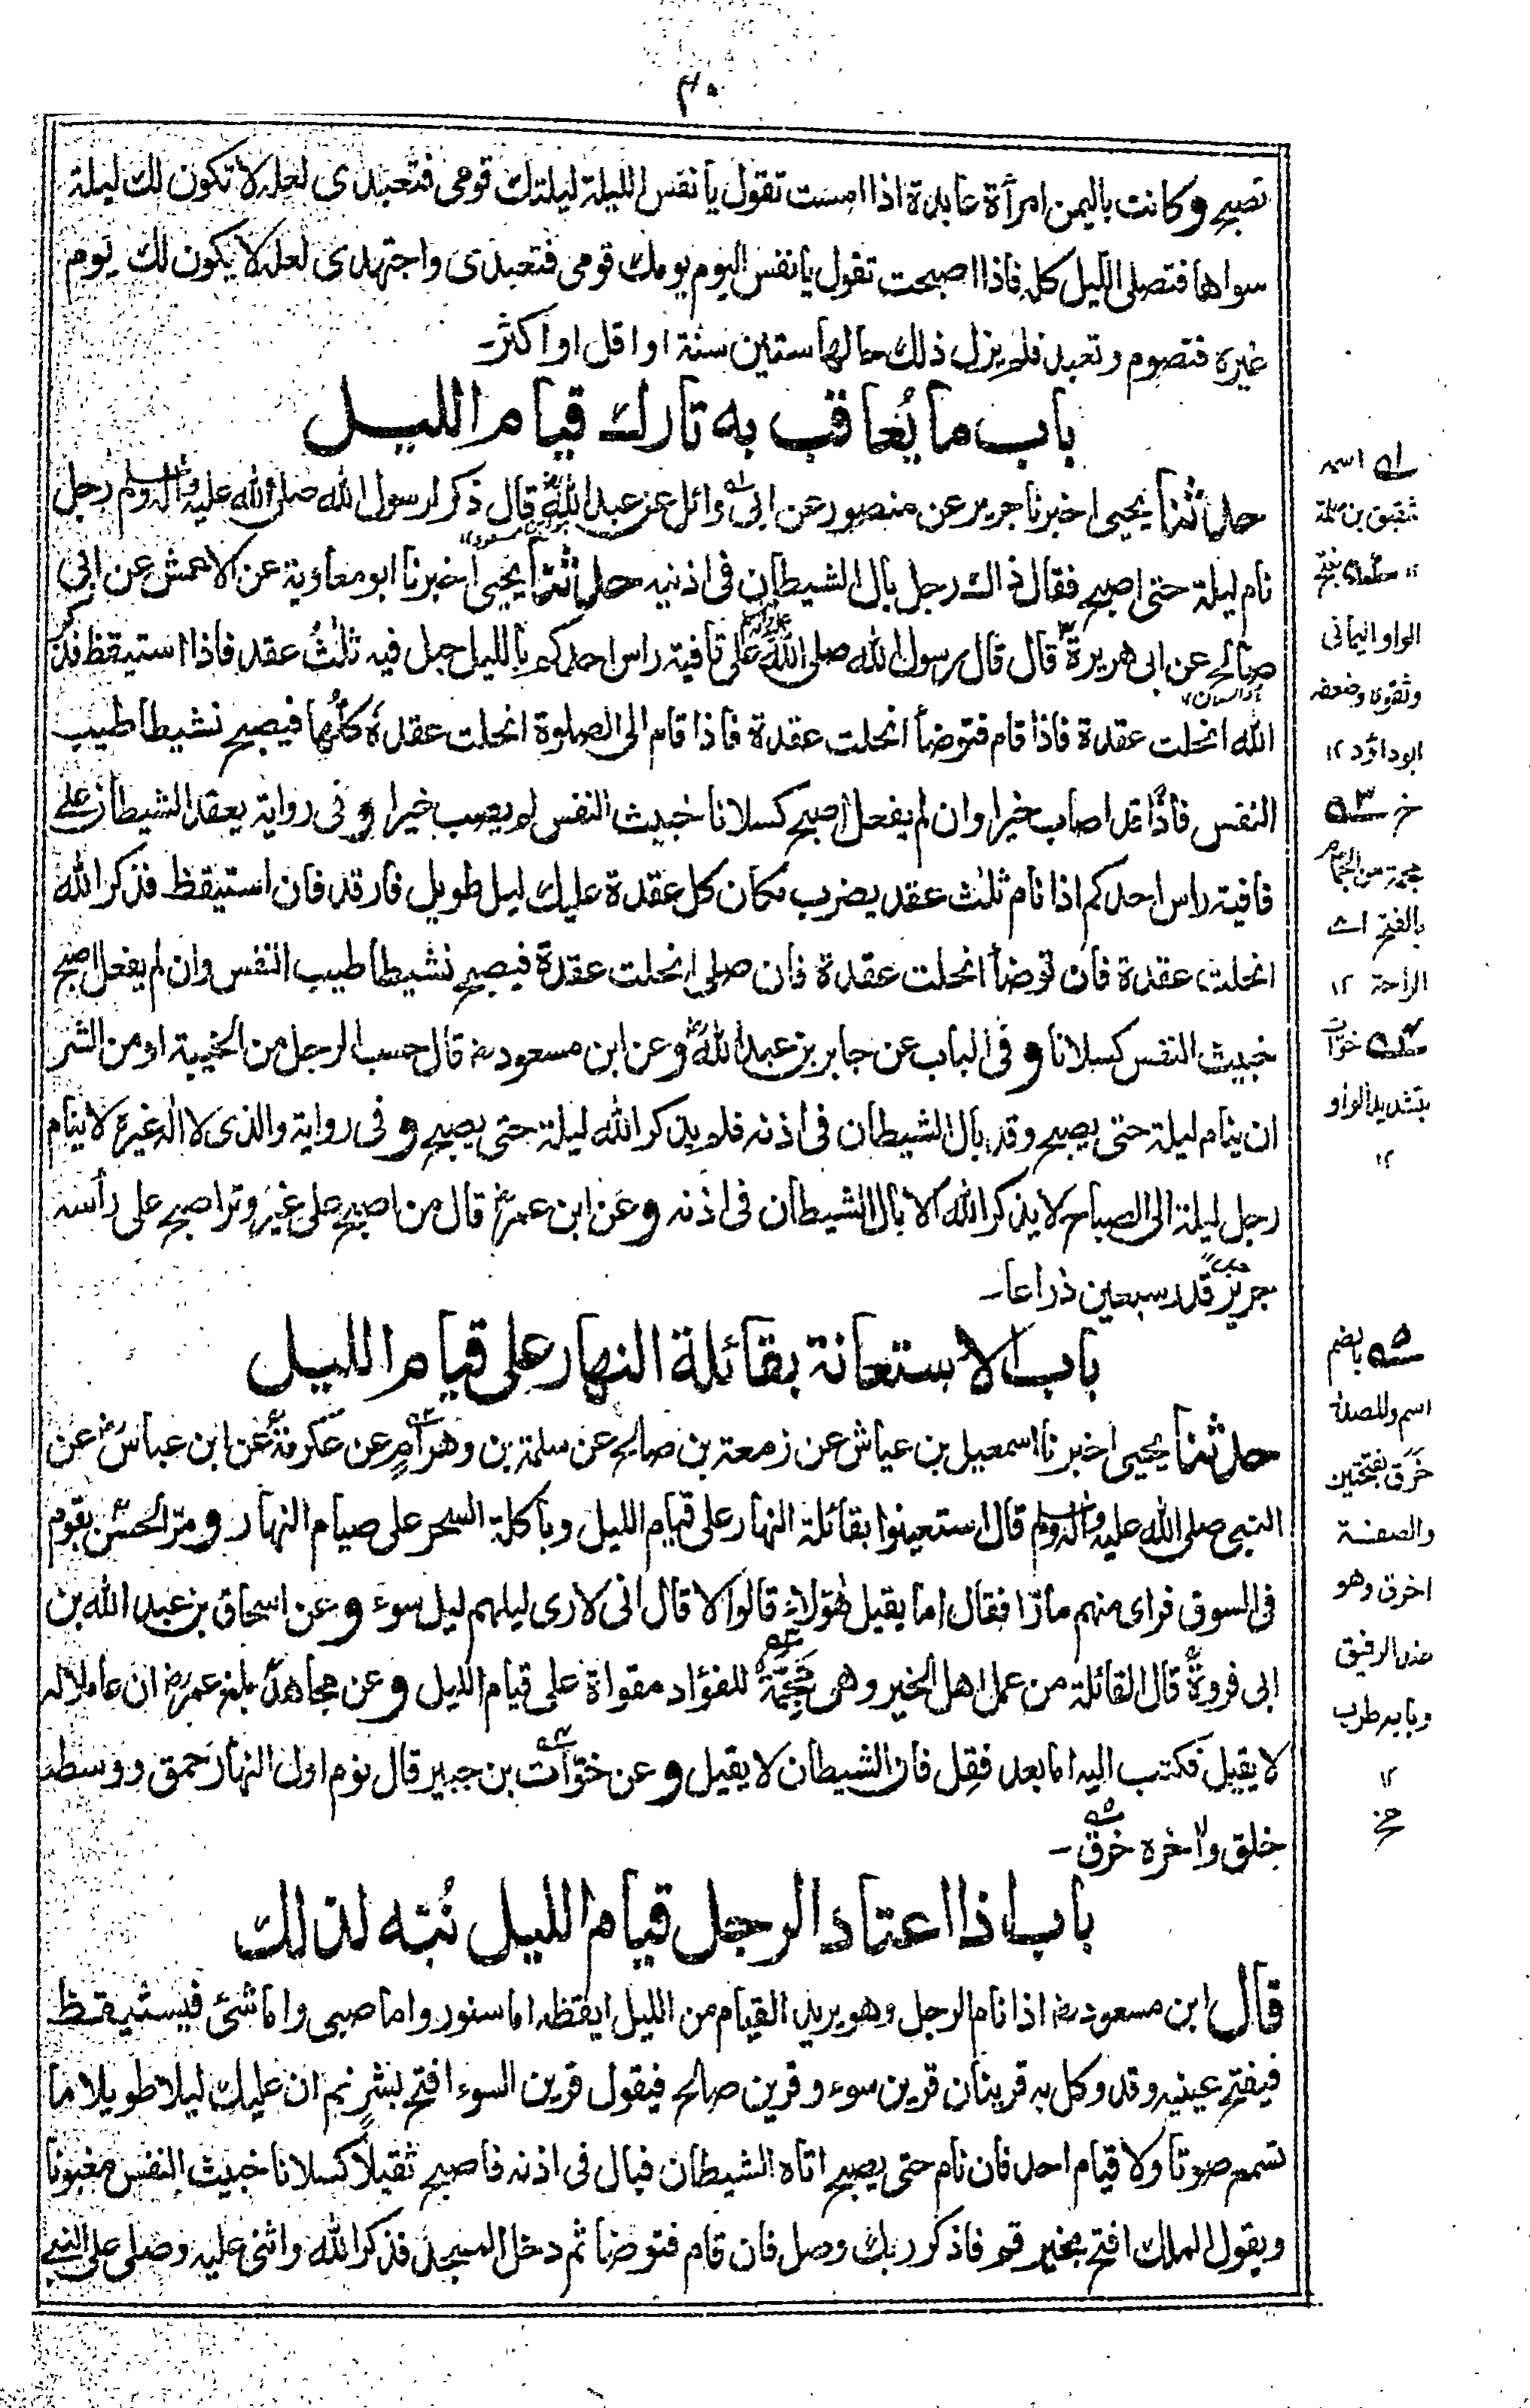 ۴۰
تصبح وكانت باليمن امرأة عابدة اذا امست تقول يا نفس الليلة ليلتك قومى فتعبدى لعله لا تكون لك ليلة
سواها فتصلى الليل كله فاذا اصبحت تقول يا نفس اليوم يومك قومى فتعبدى واجتهدى لعله لا يكون لك يوم
غيره فتصوم وتعبد فلم يزل ذلك حالها ستين سنة او اقل او اكثر۔
باب ما يُعاقب به تارك قيام الليل
حدثنا يحيى اخبرنا جرير عن منصور عن ابى وائل عن عبد الله قال ذكر لرسول الله صلى الله عليه وآله وسلم رجل
نام ليلة حتى اصبح فقال ذاك رجل بال الشيطان فى اذنيه حدثنا يحيى اخبرنا ابو معاوية عن الاعمش عن ابى
صالح عن ابى هريرة قال قال رسول الله صلى الله عليه وآله وسلم على قافية راس احدكم بالليل حبل فيه ثلٰثُ عقد فاذا استيقظ فذكر
الله انحلت عقدة فاذا قام فتوضأ انحلت عقدة فاذا قام الى الصلوة انحلت عقدهٗ كلُّها فيصبح نشيطا طيب
النفس فاذًا قد اصاب خيرا وان لم يفعل اصبح كسلانا خبيث النفس لم يصب خيرا وفى رواية يعقد الشيطان على
قافية راس احدكم اذا نام ثلٰث عقد يضرب مكان كل عقدة عليك ليل طويل فارقد فان استيقظ فذكر الله
انحلت عقدة فان توضأ انحلت عقدة فان صلى انحلت عقدة فيصبح نشيطا طيب النفس وان لم يفعل اصبح
خبيث النفس كسلانا وفى الباب عن جابر بن عبد الله وعن ابن مسعود قال حسب الرجل من الخيبة او من الشر
ان ينام ليلة حتى يصبح وقد بال الشيطان فى اذنه فلم يذكر الله ليلة حتى يصبح وفى رواية والذى لا اله غيره لا ينام
رجل ليلة الى الصباح لا يذكر الله الا بال الشيطان فى اذنه وعن ابن عمر قال من اصبح على غير وتر اصبح على رأسه
جرير قدر سبعين ذراعا۔
باب الاستعانة بقائلة النهار على قيام الليل
حدثنا يحيى اخبرنا اسمعيل بن عياش عن زمعة بن صالح عن سلمة بن وهرام عن عكرمة عن ابن عباس عن
النبى صلى الله عليه وآله وسلم قال استعينوا بقائلة النهار على قيام الليل وباكلة السحر على صيام النهار ومرّ الحسن بقوم
فى السوق فراى منهم مارًا فقال اما يقيل هؤلاء قالوا لا قال انى لارى ليلهم ليل سوء وعن اسحاق بن عبد الله بن
ابى فروة قال القائلة من عمل اهل الخير وهى مَجَمَّة للفؤاد مقواة على قيام الليل وعن مجاهد بلغ عمر ان عاملا له
لا يقيل فكتب اليه اما بعد فقِل فان الشيطان لا يقيل وعن خوّات بن جبير قال نوم اول النهار حمق ووسطه
خلق واٰخره خُرق۔
باب اذا اعتاد الرجل قيام الليل نُبّه لذلك
قال ابن مسعود اذا نام الرجل وهو يريد القيام من الليل ايقظه اما سنور واما صبى واما شئ فيستيقظ
فيفتح عينيه وقد وكل به قرينان قرين سوء وقرين صالح فيقول قرين السوء افتح بشر نم ان عليك ليلا طويلا ما
تسمع صوتا ولا قيام احد فان نام حتى يصبح اتاه الشيطان فبال فى اذنه فاصبح ثقيلا كسلانا خبيث النفس مغبونا
ويقول الملك افتح بخير قم فاذكر ربك وصل فان قام فتوضأ ثم دخل المسجد فذكر الله واثنى عليه وصلى على النبى
۱ه اسمه
شقيق بن سلمة
۱۲ ۲ه بفتح
الواو اليمانى
وثقوه وضعفه
ابو داؤد ۱۲
۳ه
مجمة من الجمام
بالفتح اى
الراحة ۱۲
۴ه خوّات
بتشديد الواو
۱۲
۵ه بالضم
اسم والمصدر
خَرَق بفتحتين
والصفة
اخرق وهو
ضد الرفيق
وبابه طرب
۱۲